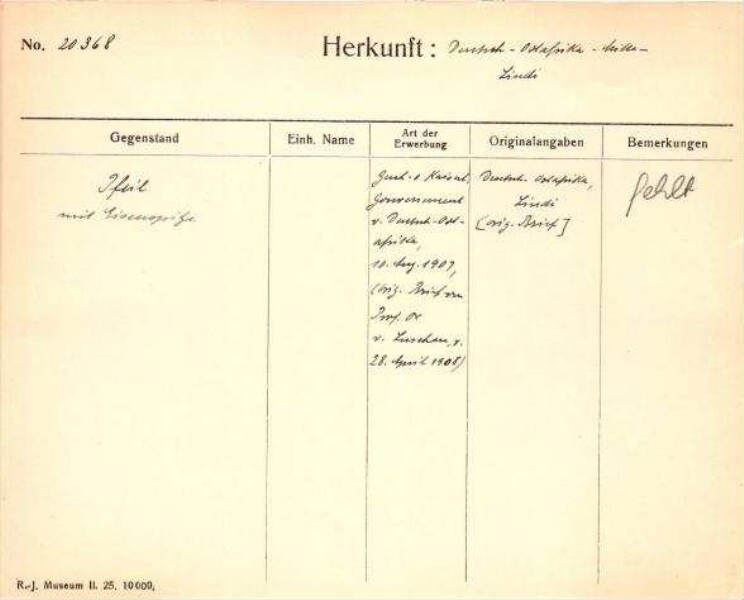 No. 20368
Herkunft: Deutsch-Ostafrika -
Lindi
Gegenstand
Einh. Name
Art der
Erwerbung
Originalangaben
Bemerkungen
Pfeil
mit Eisenspitze
Gesch. v. Kaiserl.
Gouvernement
v. Deutsch-Ost-
afrika,
10. Aug. 1907,
(orig. Brief von
Prof. Dr
v. Luschan, v.
28. April 1908)
Deutsch-Ostafrika,
Lindi
[orig. Brief]
fehlt
R.-J. Museum II. 25. 10000.